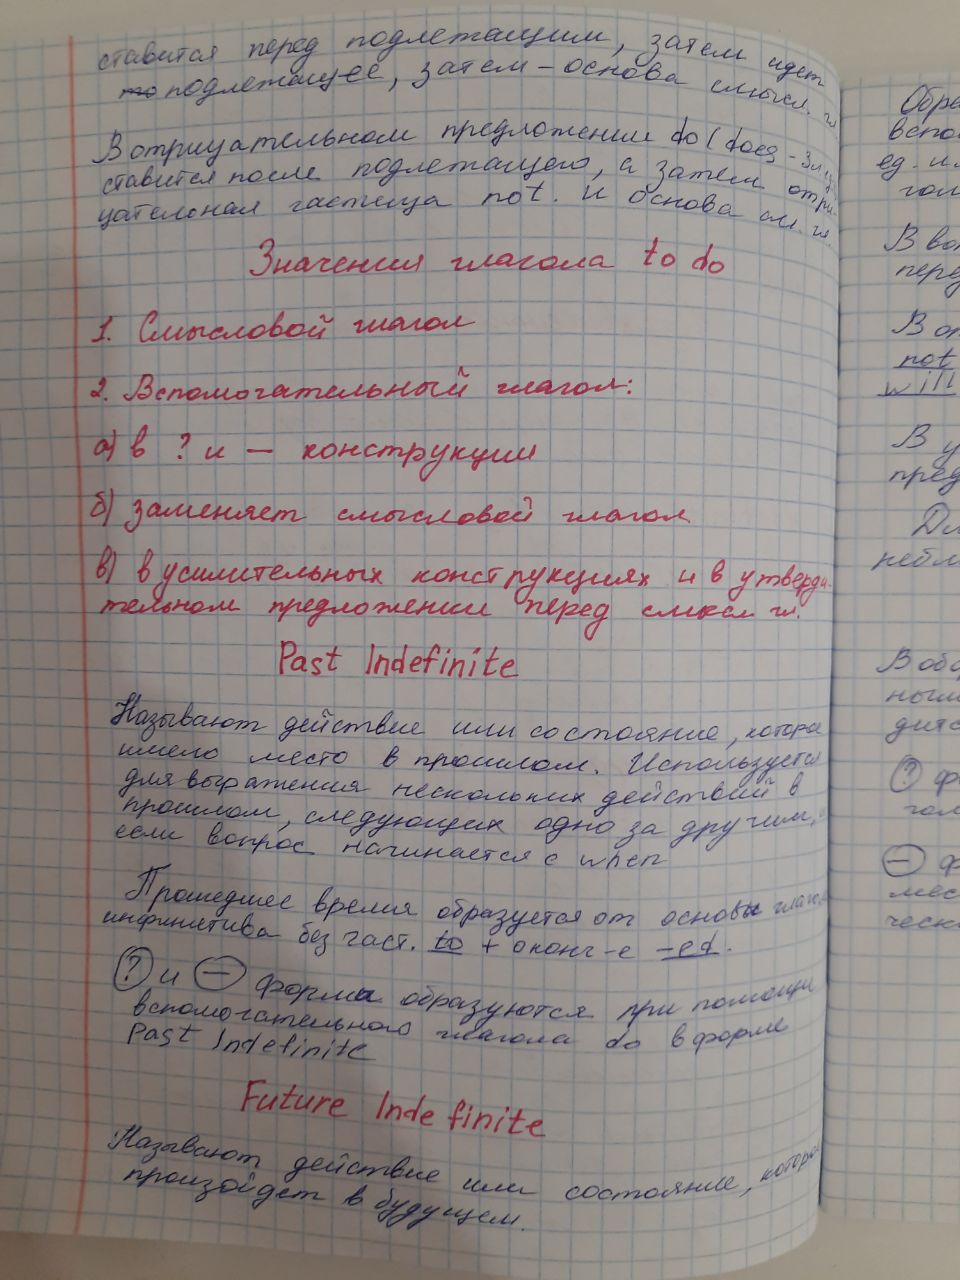 ставится перед подлежащим, затем идет
то подлежащее, затем - основа смысл. гл
В отрицательном предложении do (does - 3 л. ед
ставится после подлежащего, а затем отри-
цательная частица not. и основа см. гл.
Значения глагола to do
1. Смысловой глагол
2. Вспомогательный глагол:
а) в ? и — конструкции
б) заменяет смысловой глагол
в) в усилительных конструкциях и в утверди-
тельном предложении перед смысл гл.
Past Indefinite
Называют действие или состояние, которе
имело место в прошлом. Используется
для выражения нескольких действий в
прошлом, следующих одно за другим,
если вопрос начинается с when
Прошедшее время образуется от основы глаг.
инфинитива без част. to + оконч-е -ed.
? и — форма образуются при помощи
вспомогательного глагола do в форме
Past Indefinite
Future Indefinite
Называют действие или состояние, которое
произойдет в будущем.
Обра
вспо
ед. и л
гол
В воп
перед
В от
not
will
В у
пред
Дл
небл
В обо
ным
дитс
? ф
гол
— ф
мес
ческ